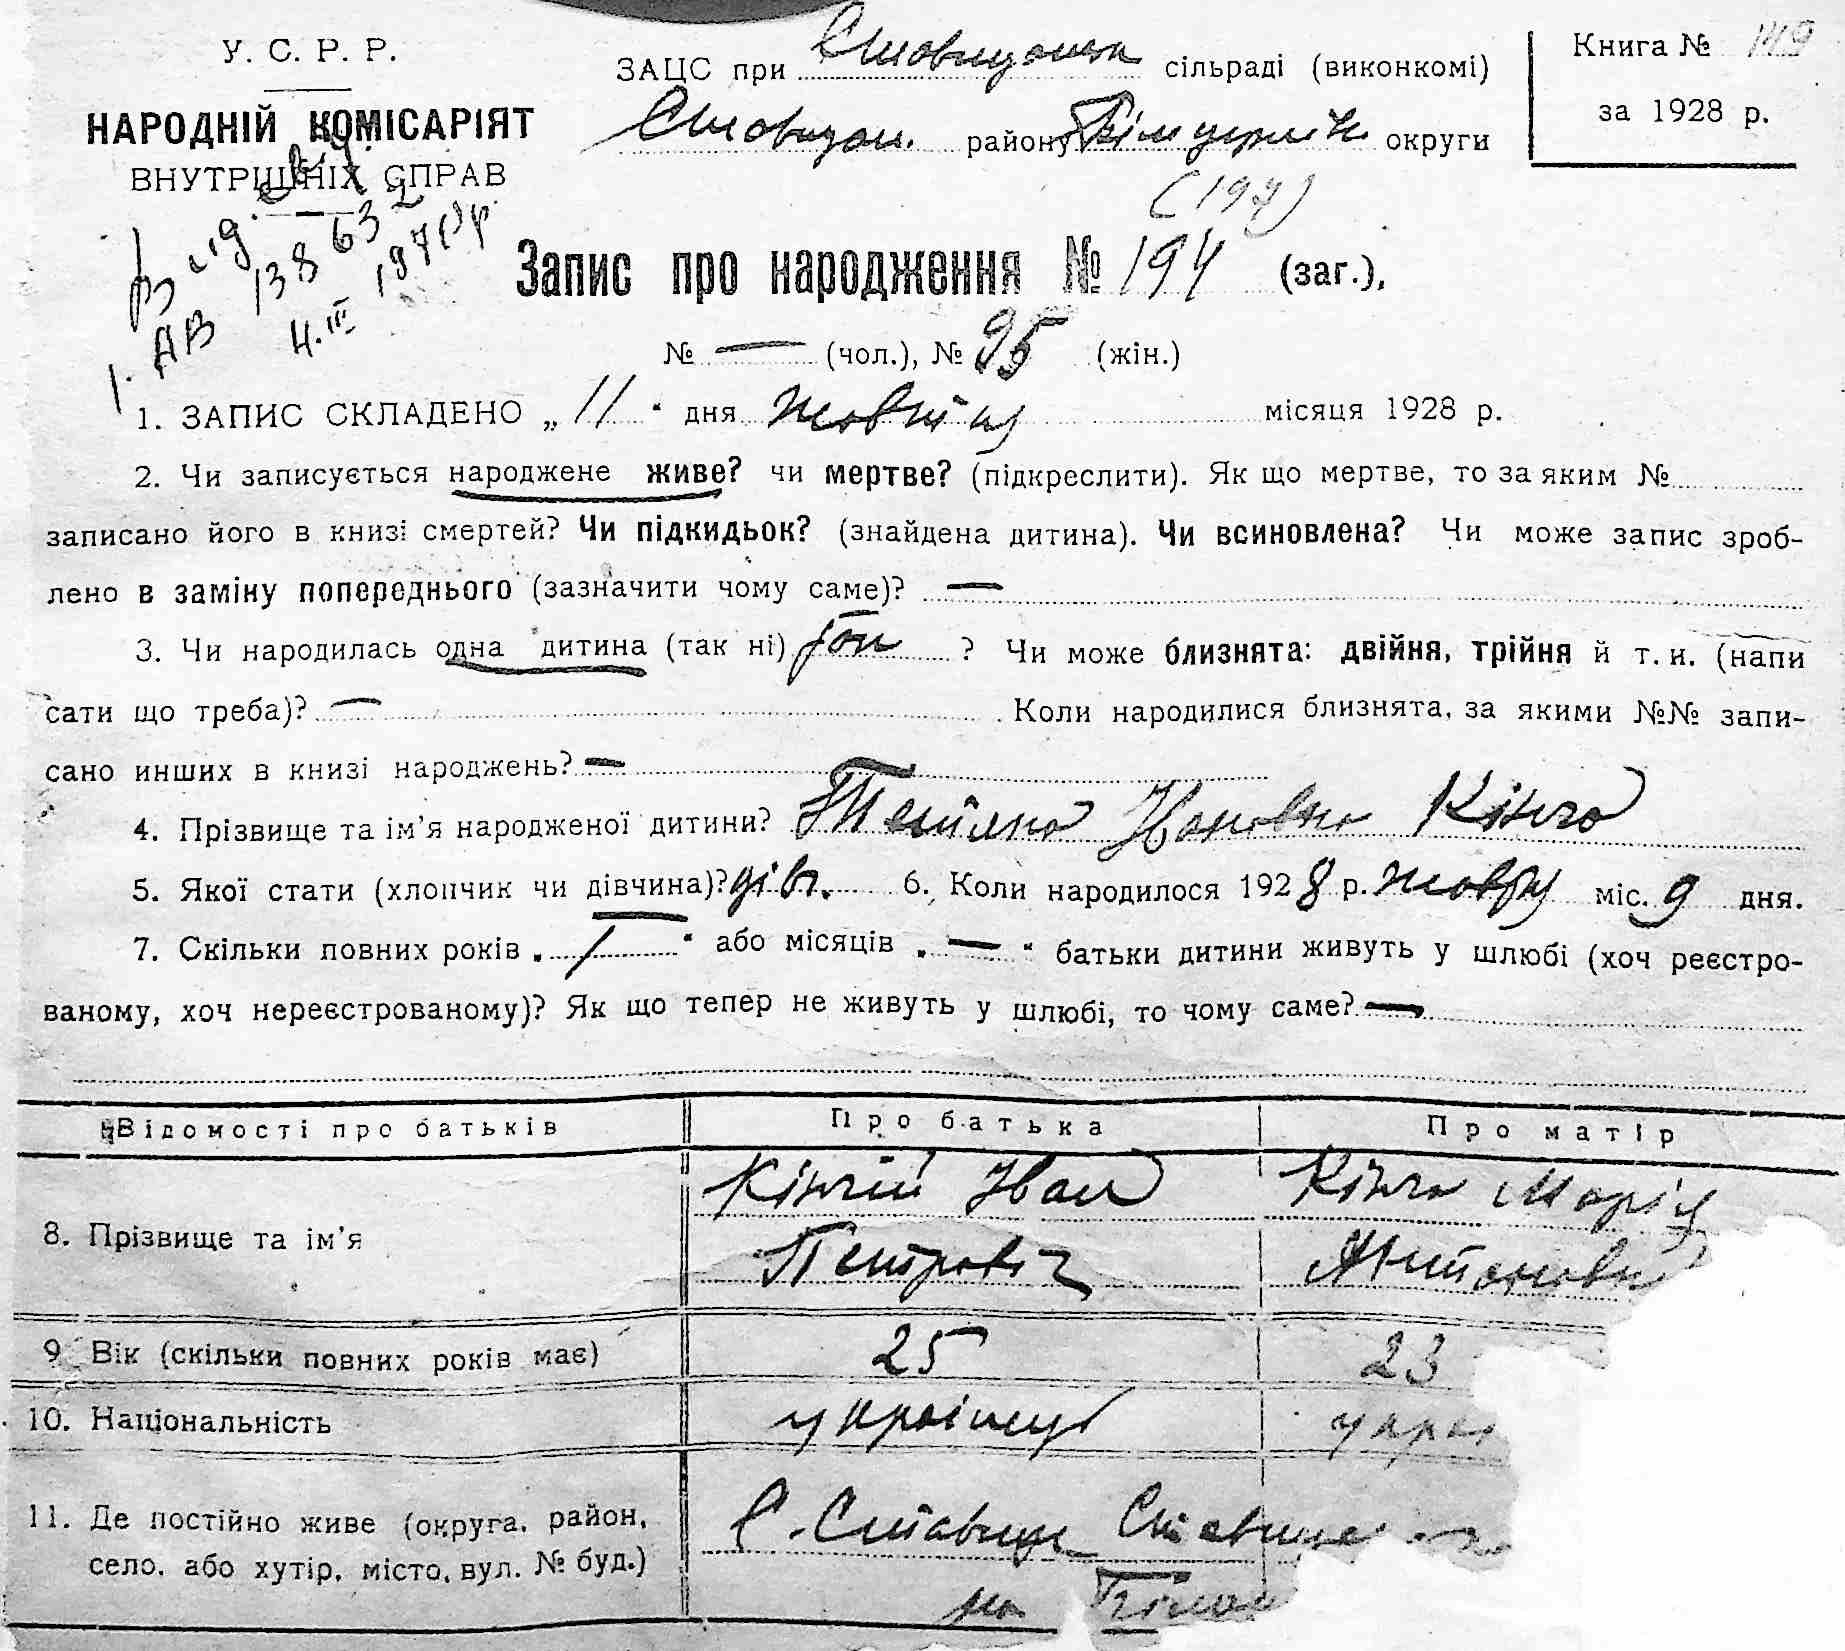 У. С. Р. Р.
НАРОДНІЙ КОМІСАРІЯТ
ВНУТРІШНІХ СПРАВ
ЗАЦС при сільраді (виконкомі)
району Білоцерків округи
Книга № 149
за 1928 р.
АВ 138632
4.III 1971 р.
(197)
Запис про народження № 194 (заг.),
№ — (чол.), № 95 (жін.)
1. ЗАПИС СКЛАДЕНО „ 11 " дня жовтня місяця 1928 р.
2. Чи записується народжене живе? чи мертве? (підкреслити). Як що мертве, то за яким №
записано його в книзі смертей? Чи підкидьок? (знайдена дитина). Чи всиновлена? Чи може запис зроб-
лено в заміну попереднього (зазначити чому саме)? —
3. Чи народилась одна дитина (так ні) ? Чи може близнята: двійня, трійня й т. и. (напи
сати що треба)? — Коли народилися близнята, за якими №№ запи-
сано инших в книзі народжень? —
4. Прізвище та ім'я народженої дитини? Тетяна Івановна Кінча
5. Якої стати (хлопчик чи дівчина)? дівч. 6. Коли народилося 1928 р. жовтня міс. 9 дня.
7. Скільки повних років „ 1 " або місяців „ — " батьки дитини живуть у шлюбі (хоч реєстро-
ваному, хоч нереєстрованому)? Як що тепер не живуть у шлюбі, то чому саме? —
Відомості про батьків Про батька Про матір
8. Прізвище та ім'я Кінчий Іван Кінча Марія
Петрович Антоновна
9. Вік (скільки повних років має) 25 23
10. Національність українці укра
11. Де постійно живе (округа, район,
село, або хутір, місто, вул. № буд.)
С. Ставище Ставище
на Білоц